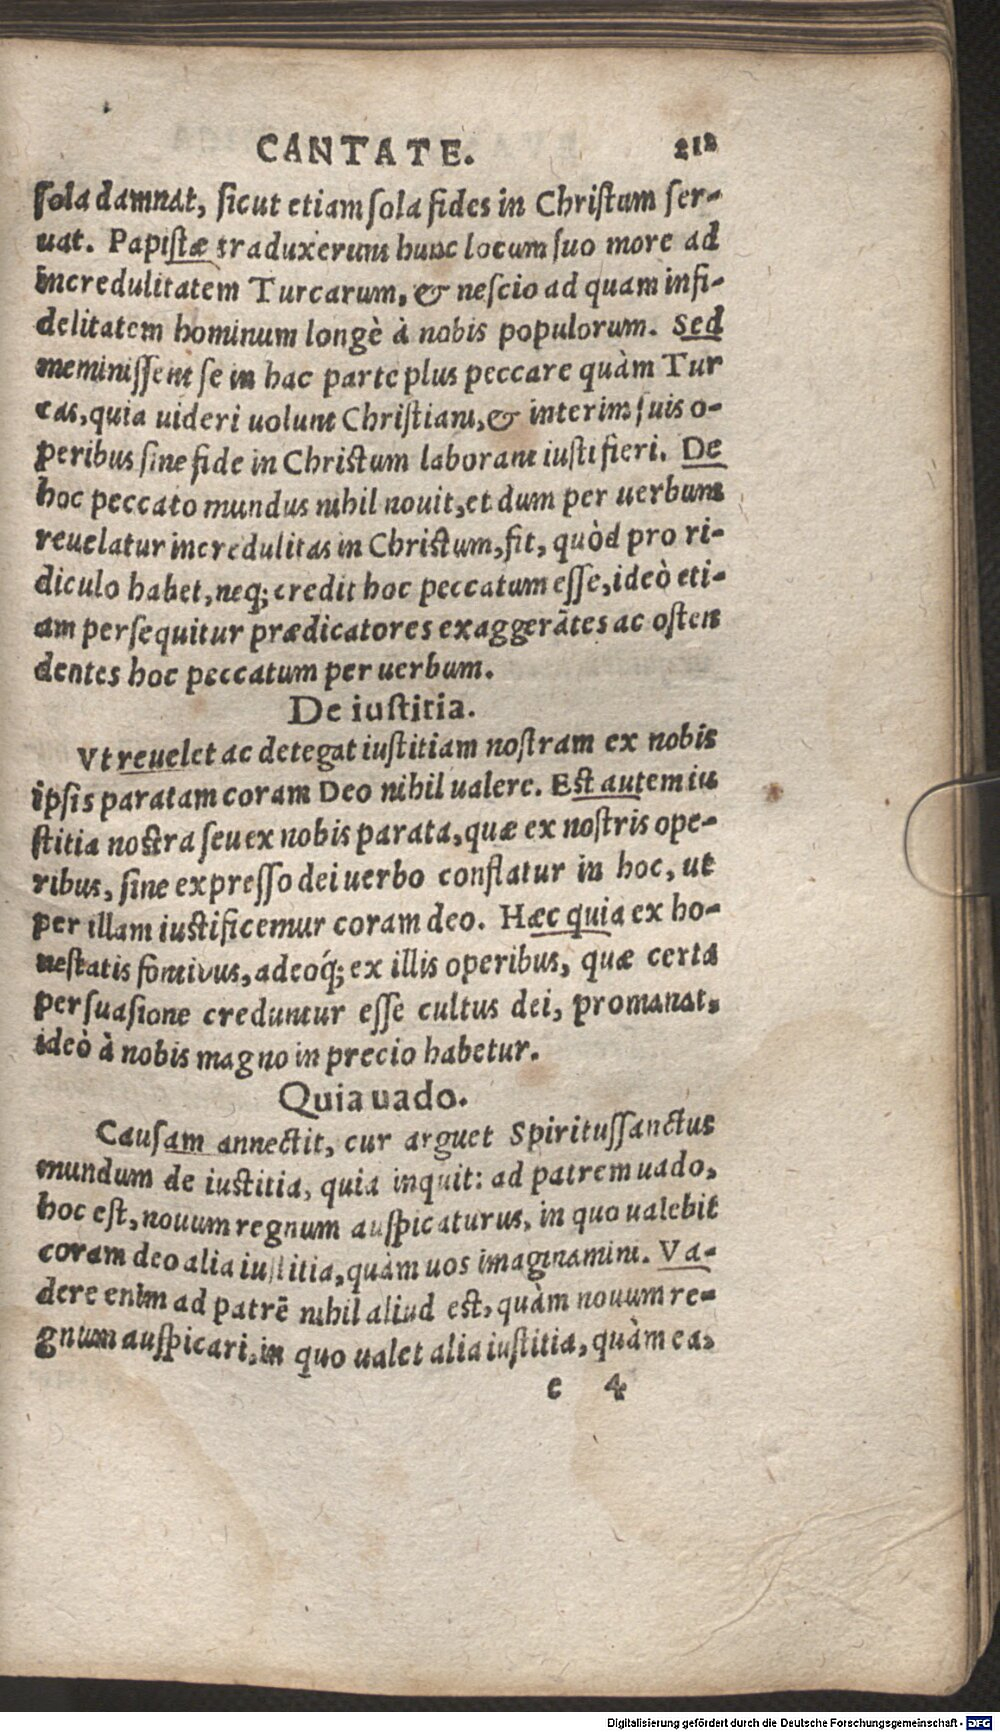 CANTATE. 212
ſola damnat, ſicut etiam ſola fides in Chriſtum ſer-
uat. Papiſtæ traduxerunt hunc locum ſuo more ad
incredulitatem Turcarum, & neſcio ad quam infi-
delitatem hominum longè à nobis populorum. Sed
meminiſſent ſe in hac parte plus peccare quàm Tur
cas, quia uideri uolunt Chriſtiani, & interim ſuis o-
peribus ſine fide in Chriſtum laborant iuſtifieri. De
hoc peccato mundus nihil nouit, et dum per uerbum
reuelatur incredulitas in Chriſtum, fit, quòd pro ri-
diculo habet, neq; credit hoc peccatum eſſe, ideò eti-
am perſequitur prædicatores exaggerātes ac oſten
dentes hoc peccatum per uerbum.
De iuſtitia.
Vt reuelet ac detegat iuſtitiam noſtram ex nobis
ipſis paratam coram Deo nihil ualere. Eſt autem iu
ſtitia noſtra ſeu ex nobis parata, quæ ex noſtris ope-
ribus, ſine expreſſo dei uerbo conflatur in hoc, ut
per illam iuſtificemur coram deo. Hæc quia ex ho-
neſtatis fontibus, adeoq́; ex illis operibus, quæ certa
perſuaſione creduntur eſſe cultus dei, promanat,
ideò à nobis magno in precio habetur.
Quia uado.
Cauſam annectit, cur arguet Spirituſſanctus
mundum de iuſtitia, quia inquit: ad patrem uado,
hoc eſt, nouum regnum auſpicaturus, in quo ualebit
coram deo alia iuſtitia, quàm uos imaginamini. Va-
dere enim ad patrē nihil aliud eſt, quàm nouum re-
gnum auſpicari, in quo ualet alia iuſtitia, quàm ea,
e 4
Digitalisierung gefördert durch die Deutsche Forschungsgemeinschaft - DFG